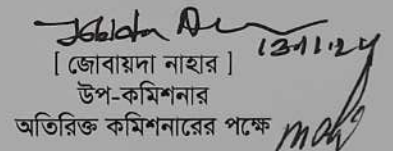 13.11.24
[ জোবায়দা নাহার ]
উপ-কমিশনার
অতিরিক্ত কমিশনারের পক্ষে